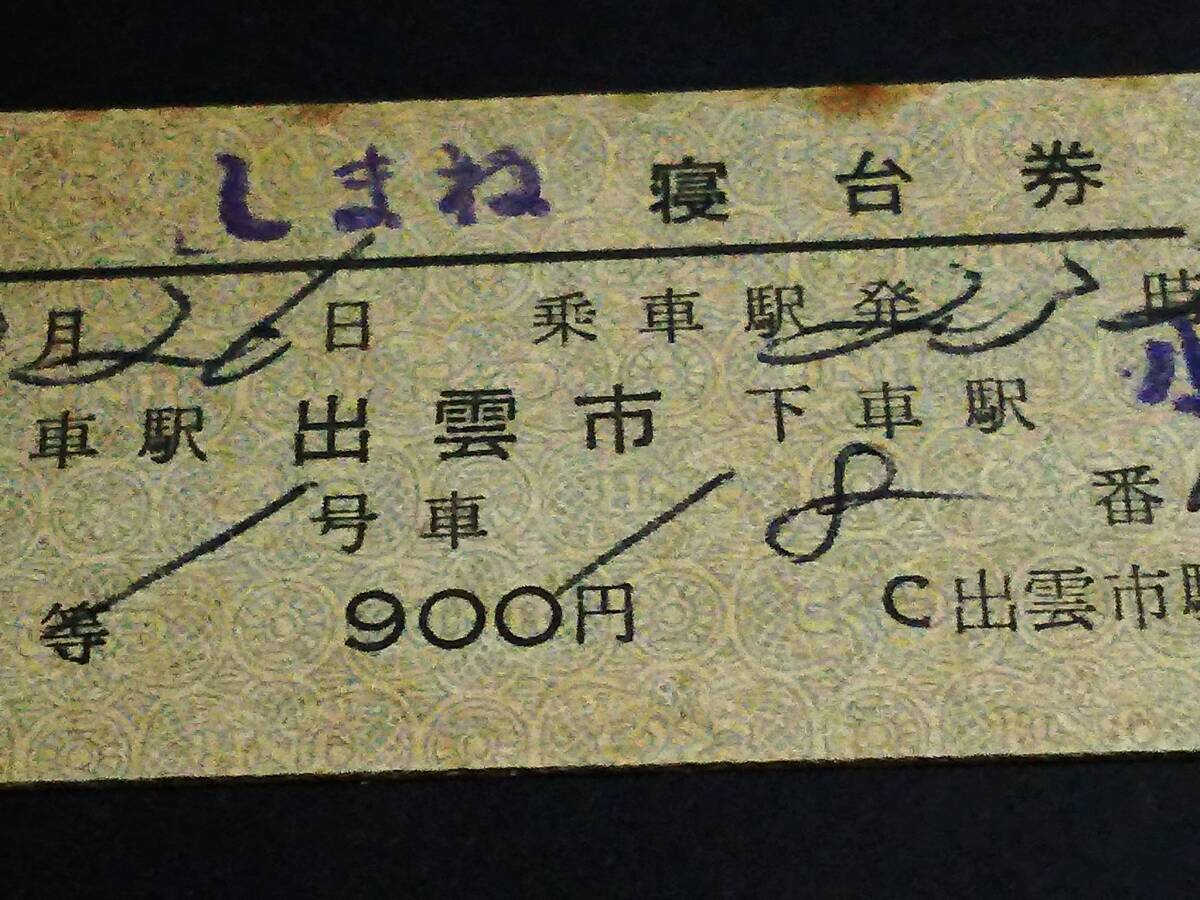 しまね 寝台券
月26日 乗車駅発23時
車駅 出雲市 下車駅
号車 8 番
等 900円 C出雲市駅